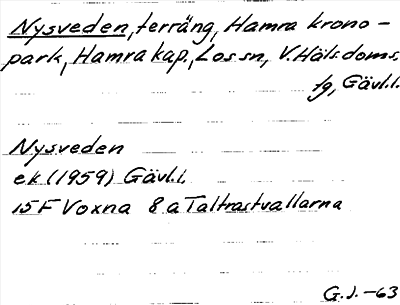 Nysveden, terräng, Hamra krono-
park, Hamra kap., Los sn, V. Häls. doms.
tg, Gävl.l.
Nysveden
ek (1959) Gävl.l.
15 F Voxna 8 a Taltrastvallarna
G.J.-63